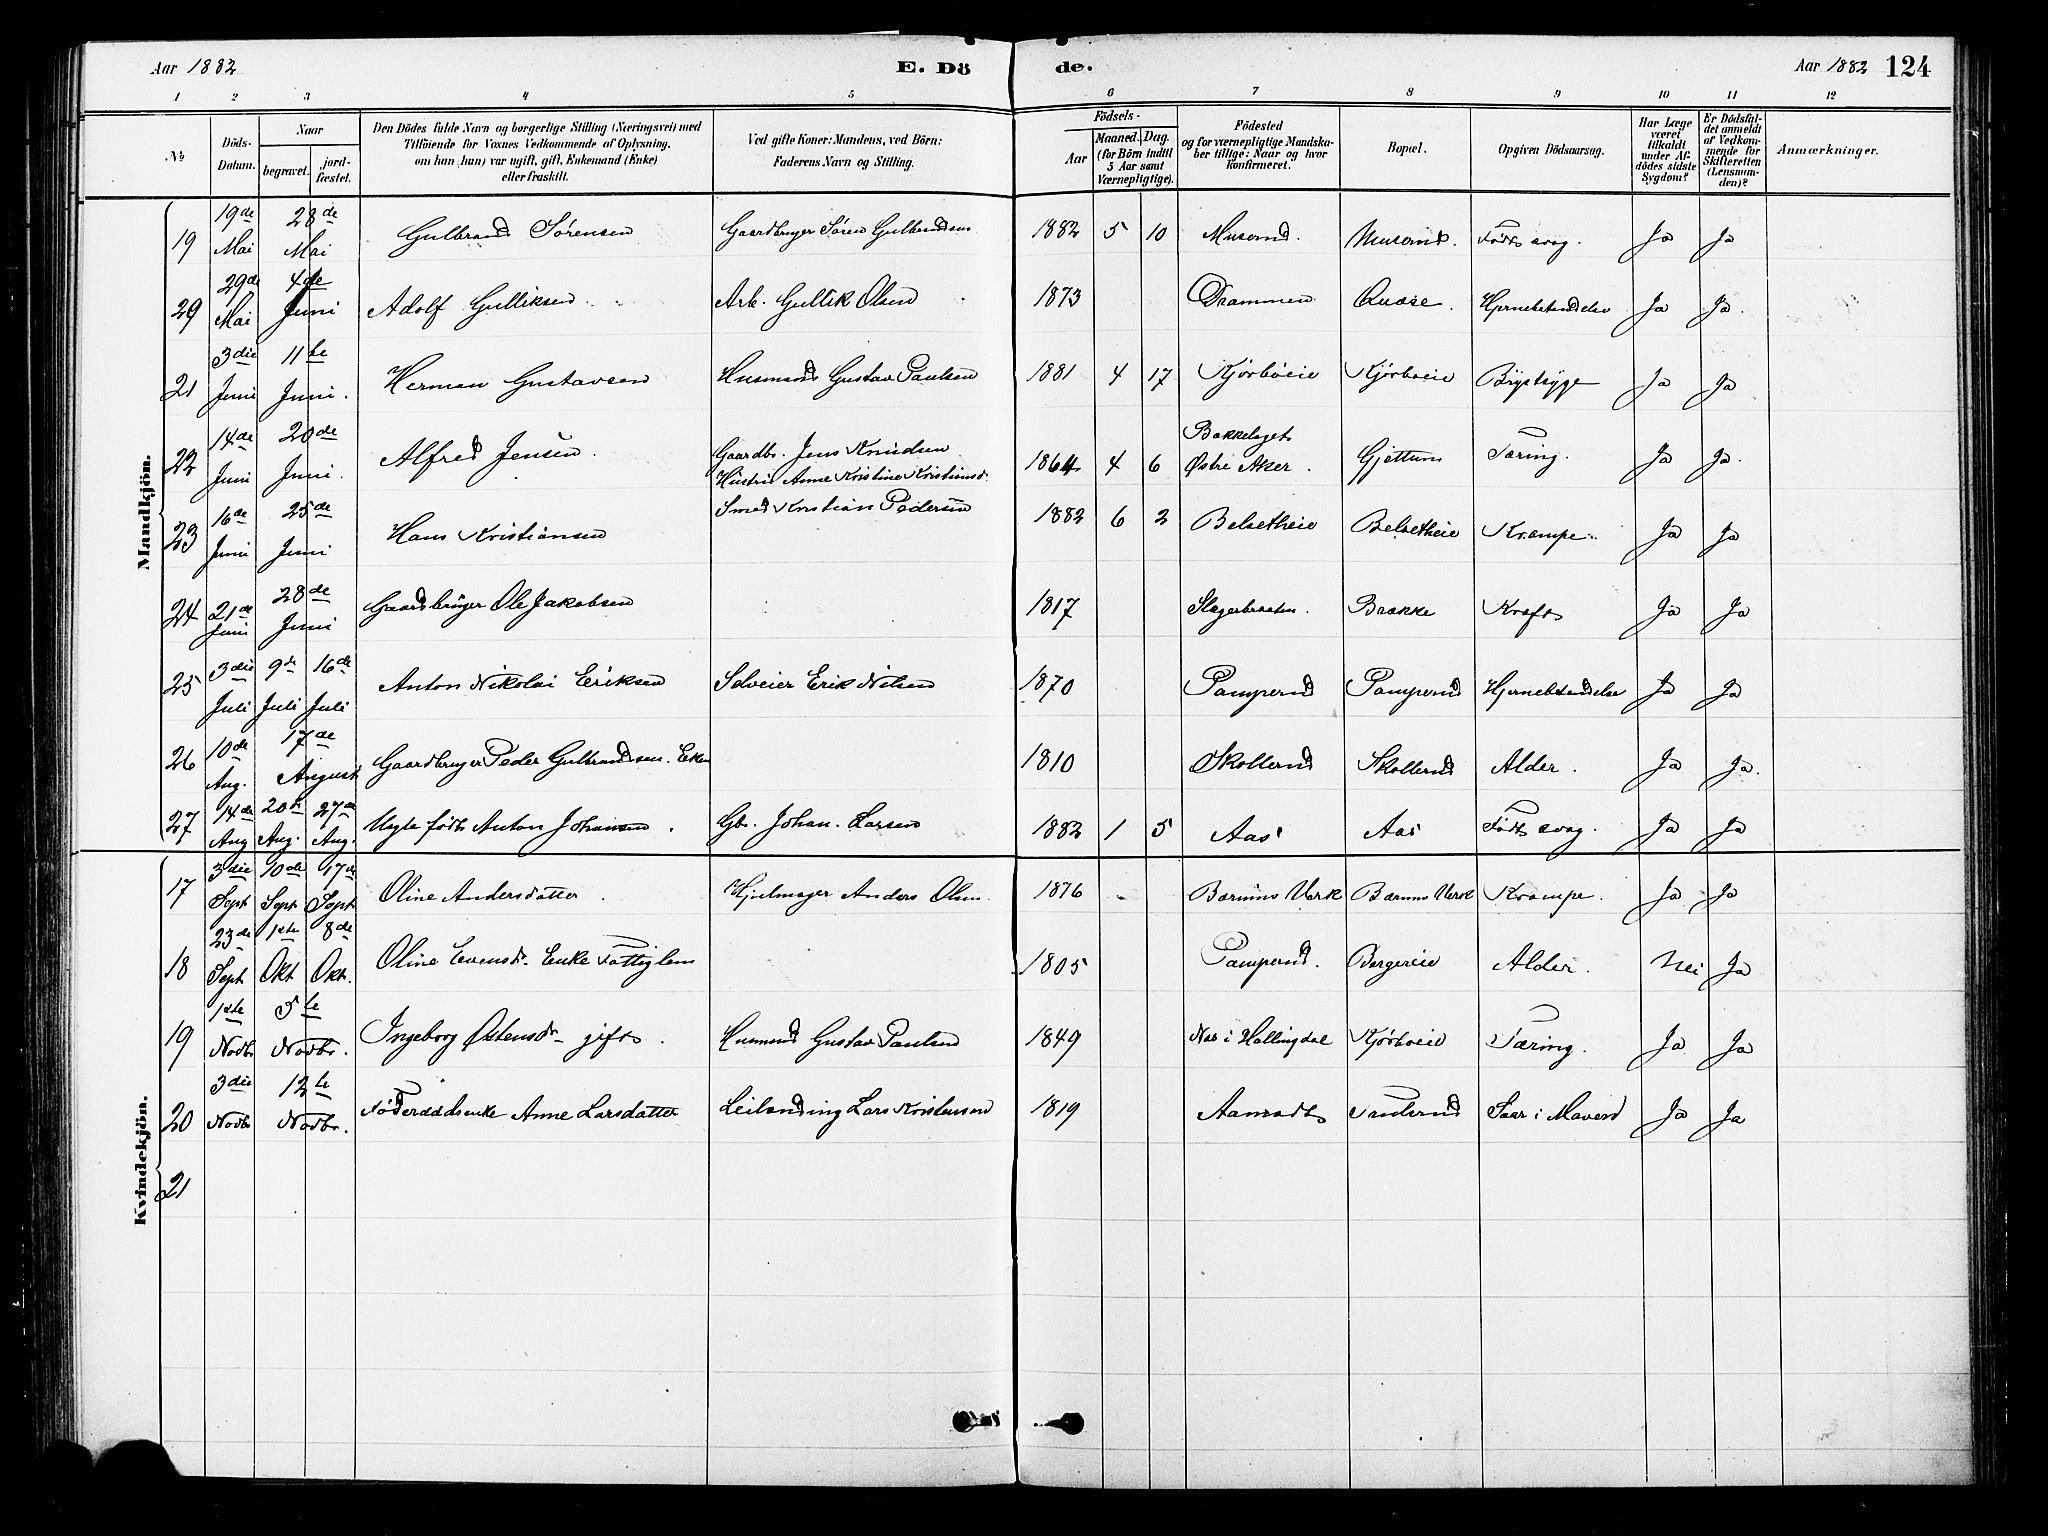 Aar 1882
E. Dö
de.
Aar 1882
124
1 2 3 4 5 6 7 8 9 10 11 12
No.
Döds-Datum.
Naar begravet. jordfæstet.
Den Dödes fulde Navn og borgerlige Stilling (Næringsvei) med
Tilföiende for Voxnes Vedkommende af Oplysning,
om han (hun) var ugift, gift, Enkemand (Enke)
eller fraskilt.
Ved gifte Koner: Mandens, ved Börn:
Faderens Navn og Stilling.
Födsels-
Aar Maaned. Dag.
(for Börn indtil 5 Aar samt Værnepligtige).
Födested
og for værnepligtige Mandskaber tillige: Naar og hvor konfirmeret.
Bopæl.
Opgiven Dödsaarsag.
Har Læge været tilkaldt under Afdödes sidste Sygdom?
Er Dödsfaldet anmeldt af Vedkommende for Skifteretten (Lensmanden)?
Anmærkninger.
Mandkjön.
19 19de Mai 28de Mai Gulbrand Sørensen Gaardbruger Søren Gulbrandsen 1882 5 10 Muserud. Muserud. Født svag. Ja Ja
29 29de Mai 4de Juni Adolf Gulliksen Arb. Gullik Olsen 1873 Drammen Hjernebetændelse Ja Ja.
21 3die Juni 11te Juni. Herman Gustavsen Husmand Gustav Paulsen 1881 4 17 Kjørboeie Kjørboeie Brystsyge Ja Ja
22 14de Juni 20de Juni. Alfred Jensen. Gaardbr. Jens Knudsen Hustru Anne Kristine Kristiansd. 1864 4 6 Bakkelaget Østre Aker. Gjettum Tæring. Ja Ja.
23 16de Juni 25de Juni Hans Kristiansen Smed Kristian Pedersen 1882 6 2 Belsetheie Belsetheie Krampe. Ja Ja
24 21de Juni 28de Juni Gaardbruger Ole Jakobsen 1817 Slagerbraaten. Bakke Kræft Ja Ja
25 3die Juli 9de Juli 16de Juli Anton Nikolai Eriksen Selveier Erik Nilsen 1870 Pamperud Pamperud Hjernebetændelse Ja Ja
26 10de Aug. 17de August Gaardbruger Peder Gulbrandsen. Enkem 1810 Skollerud Skollerud Alder. Ja Ja.
27 14de Aug 20de Aug. 27de Aug. Uegte født Anton Johansen. Gb. Johan. Larsen 1882 1 5 Aas Aas Født svag. Ja Ja
Kvindekjön.
17 3die Sept 10de Sept 17de Sept Oline Andersdatter Hjulmager Anders Olsen. 1876 Bærums Verk Bærums Verk Krampe. Ja Ja
18 23de Sept 1ste Okt 8de Okt. Oline Evensdr. Enke Fattiglem 1805 Pamperud. Bergereie Alder. Nei Ja
19 1ste Novbr 5te Novbr. Ingeborg Østensdr. gift. Husmand Gustav Paulsen 1849 Nas i Hallingdal Kjørboeie Tæring. Ja Ja
20 3die Novbr 12te Novbr. Føderaadsenke Anne Larsdatter Leilending Lars Kristensen 1819 Aamodt Tanlerud Saar i Maven Ja Ja
21